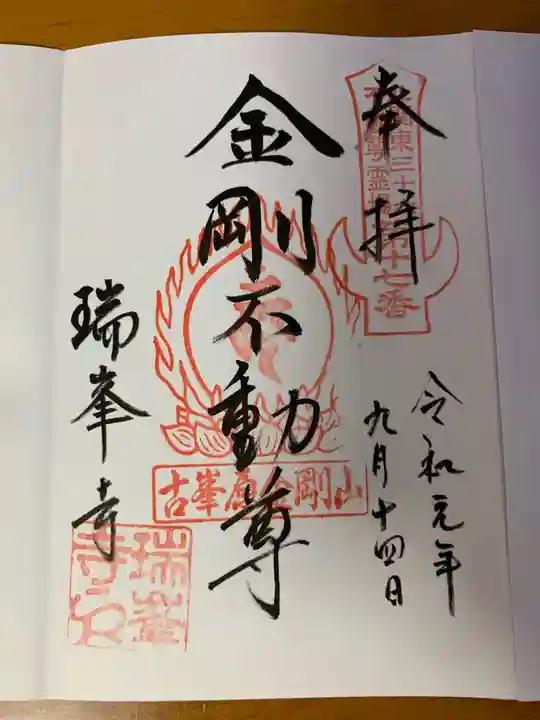 奉拝
北関東三十六
不動尊霊場第十七番
令和元年
九月十四日
金剛不動尊
古峯原金剛山
瑞峯寺
瑞峯
寺印